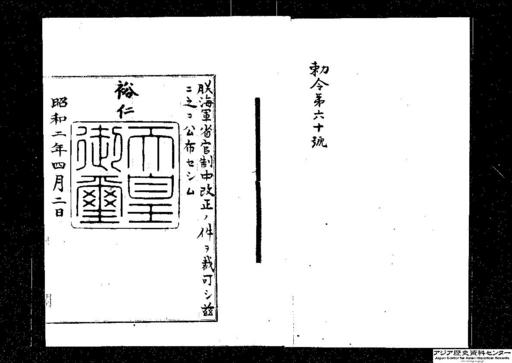 勅令第六十號
朕海軍省官制中改正ノ件ヲ裁可シ玆
ニ之ヲ公布セシム
裕仁
天皇御璽
昭和二年四月二日
アジア歴史資料センター
Japan Center for Asian Historical Records